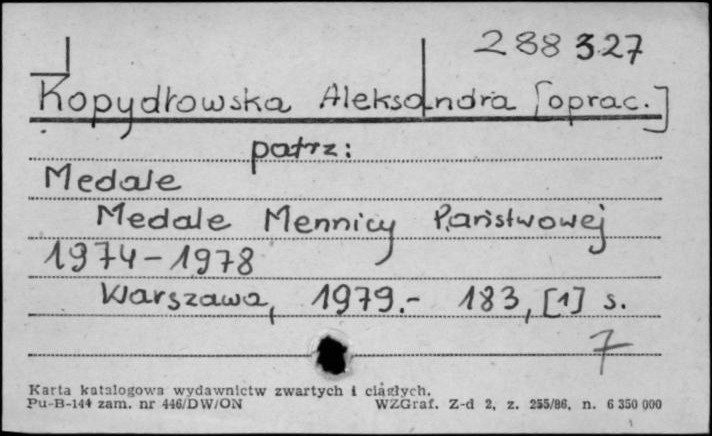 288327
Kopydłowska Aleksandra [oprac.]
patrz:
Medale
Medale Mennicy Państwowej
1974-1978
Warszawa, 1979.- 183, [1] s.
7
Karta katalogowa wydawnictw zwartych i ciągłych.
Pu-B-144 zam. nr 446/DW/ON WZGraf. Z-d 2, z. 255/86, n. 6 350 000